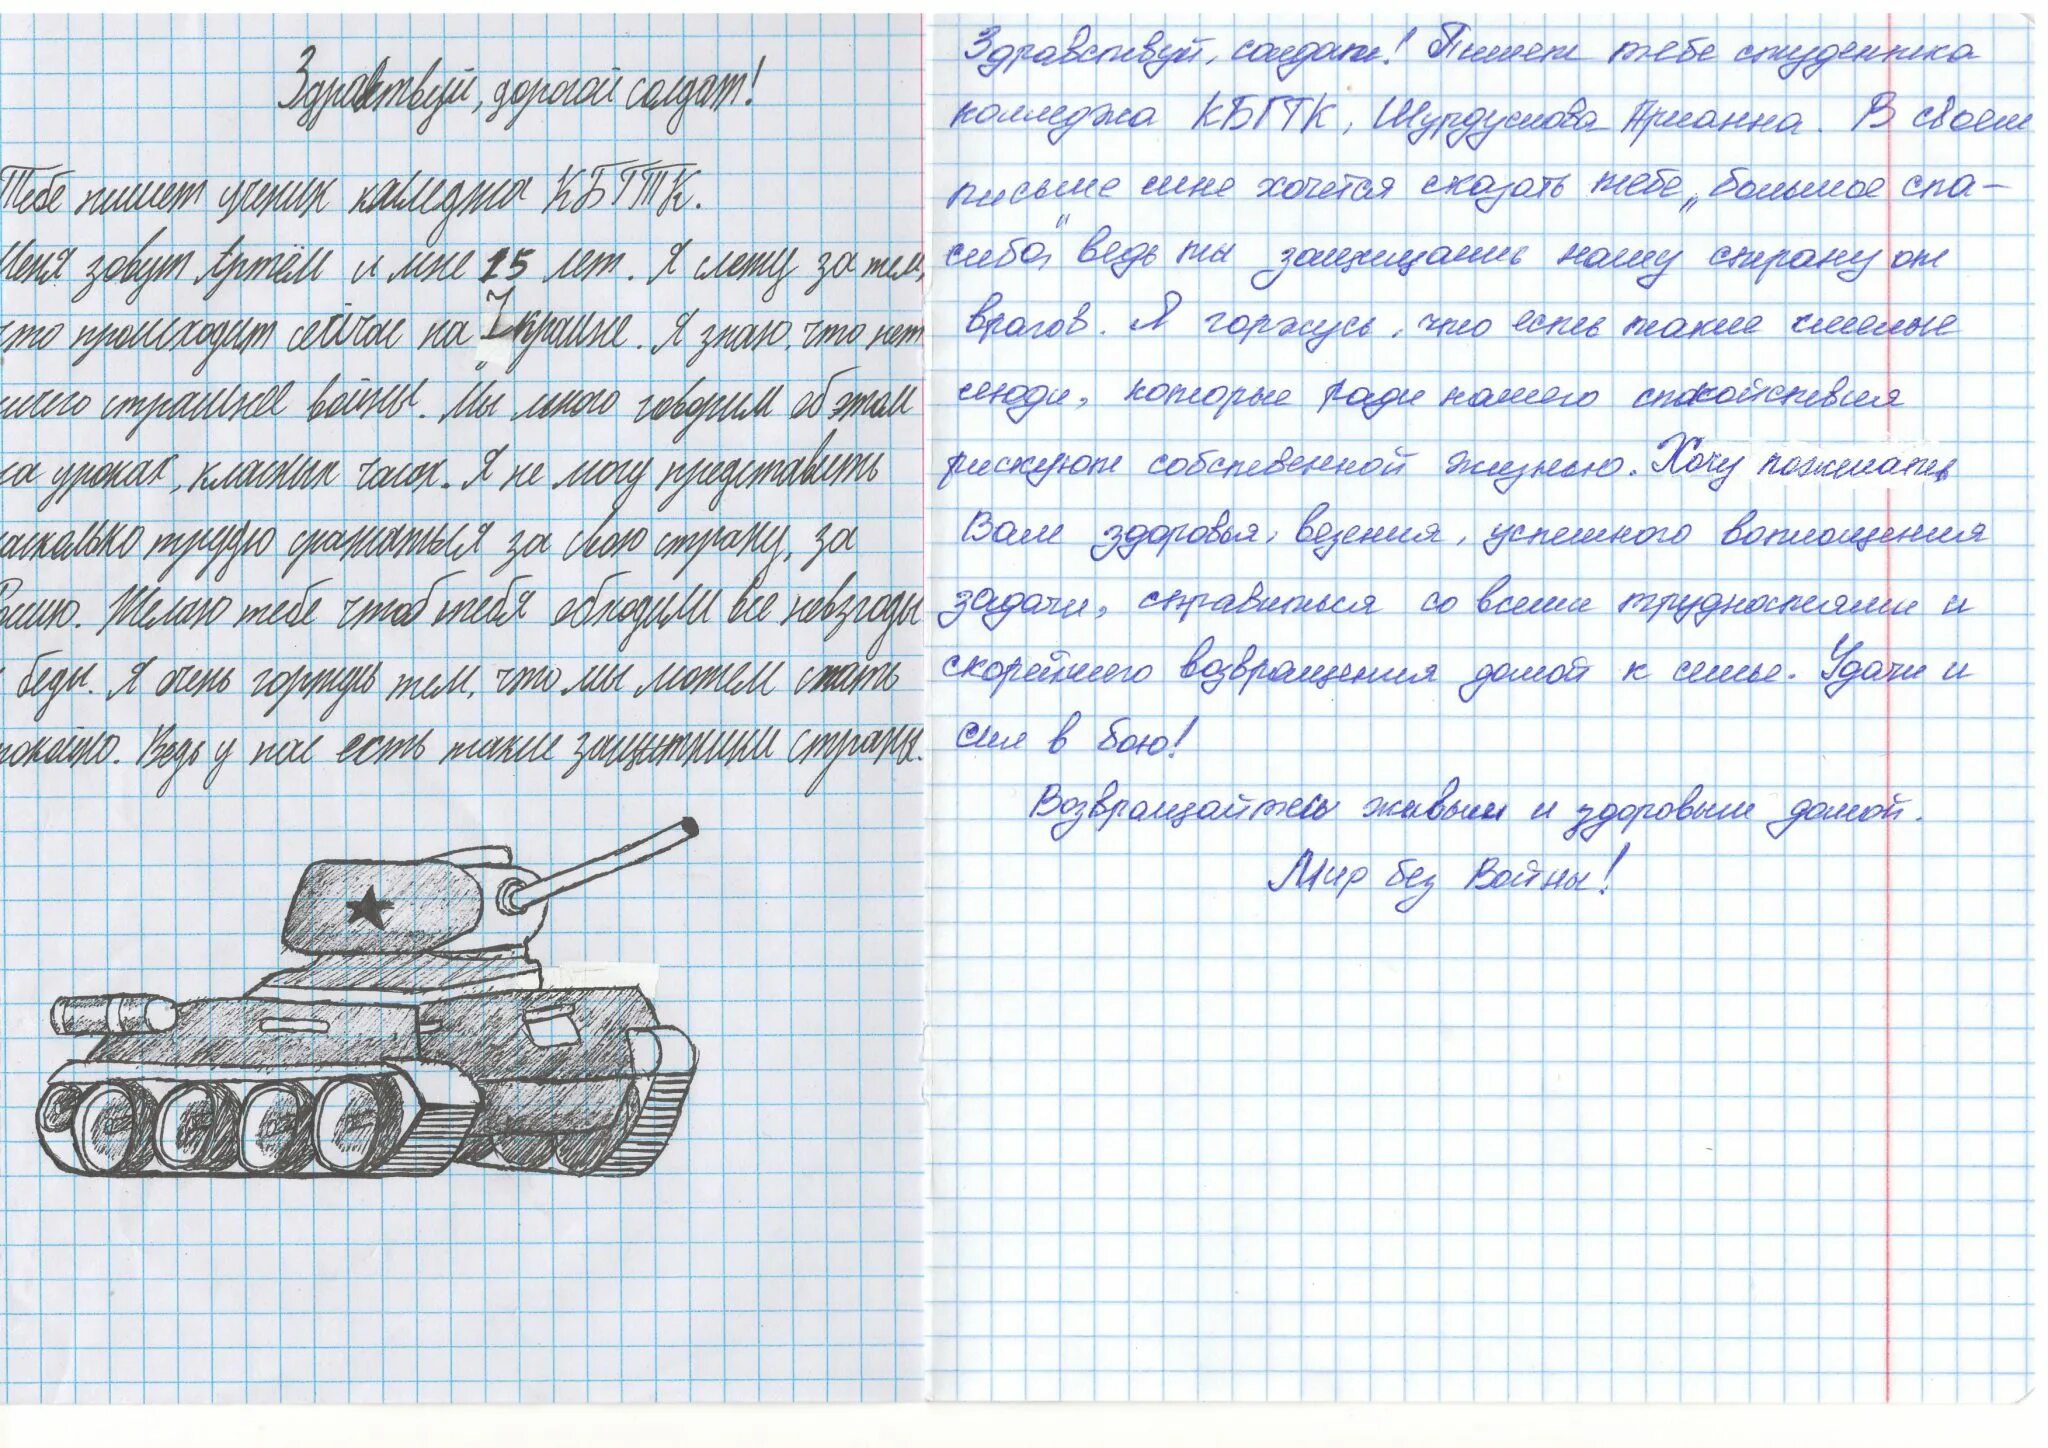 Здравствуй, дорогой солдат!
Тебе пишет ученик калледжа КБГТК.
Меня зовут Артём и мне 15 лет. Я слежу за тем,
что происходит сейчас на Украине. Я знаю, что нет
ничего страшнее войны. Мы много говорим об этом
на уроках, класных часах. Я не могу представить
насколько трудно сражаться за свою страну, за
Россию. Желаю тебе чтоб тебя обходили все невзгоды
и беды. Я очень горжусь тем, что мы можем спать
спокойно. Ведь у нас есть такие защитники страны.
Здравствуй, солдат! Пишет тебе студентка
колледжа КБГТК, Арианна. В своем
письме мне хочется сказать тебе „большое спа-
сибо" ведь ты защищаешь нашу страну от
врагов. Я горжусь, что есть такие смелые
люди, которые ради нашего спокойствия
рискуют собственной жизнью. Хочу пожелать
Вам здоровья, везения, успешного воплощения
задачи, справиться со всеми трудностями и
скорейшего возвращения домой к семье. Удачи и
сил в бою!
Возвращайтесь живым и здоровым домой.
Мир без Войны!